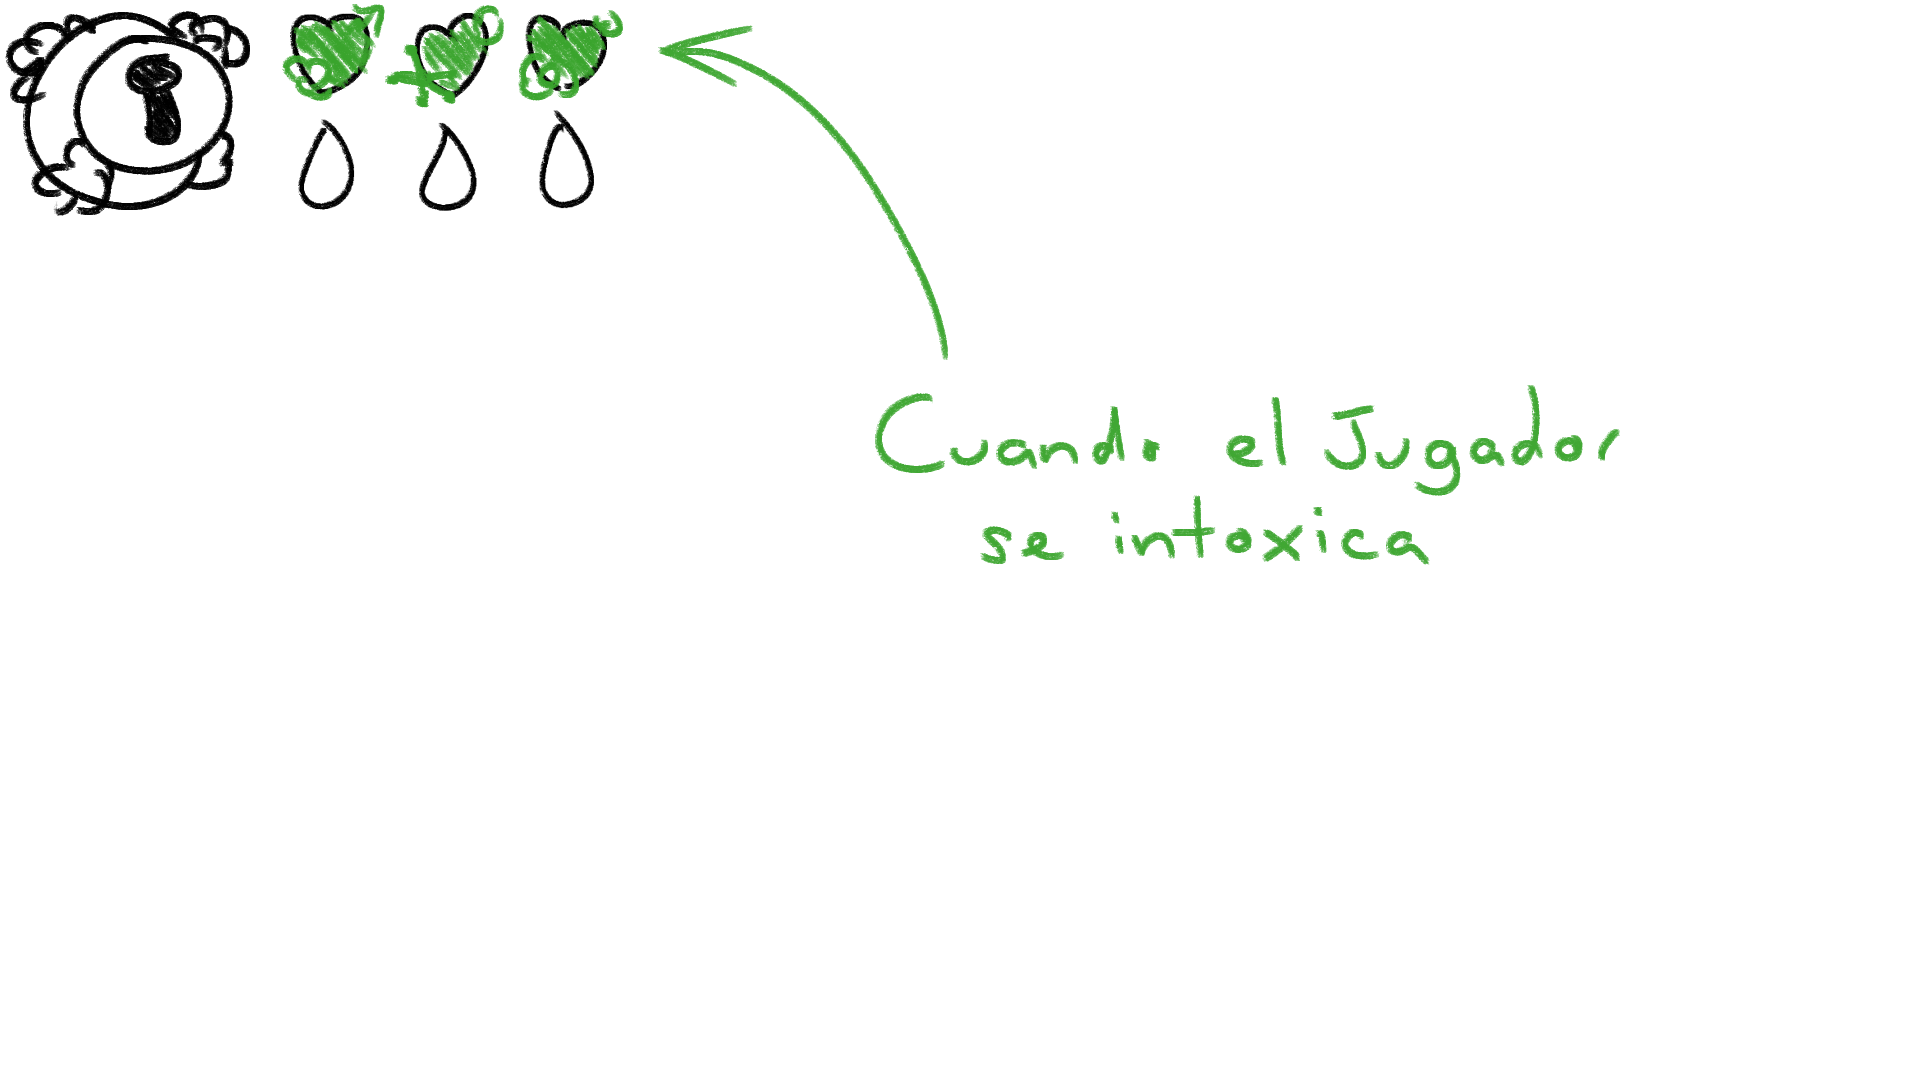 Cuando el Jugador
se intoxica